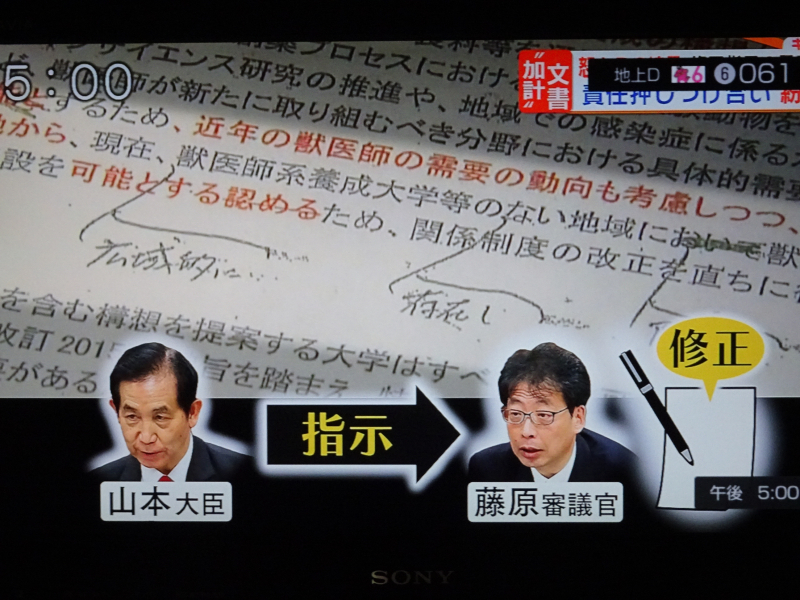 5:00
地上D
6
061
"加計"
文書
責任押しつけ合い
サイエンス研究の推進や、地域での感染症に係る
獣医師が新たに取り組むべき分野における具体的需要
するため、近年の獣医師の需要の動向も考慮しつつ、
から、現在、獣医師系養成大学等のない地域において獣
設を可能とする認めるため、関係制度の改正を直ちに
広域的に
存在し
を含む構想を提案する大学はすべ
改訂2015
旨を踏まえ
がある
修正
指示
山本大臣
藤原審議官
午後 5:00
SONY